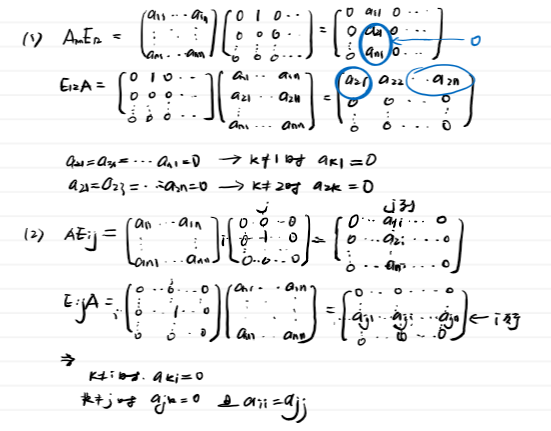 (1) AmE12 = (a11 ··· a1n ⋮ ⋮ ⋮ an1 ··· ann) (0 1 0 ·· 0 0 0 ·· ⋮ ⋮ ⋮ 0 0 0 ···) = (0 a11 0 ·· 0 a21 0 ·· ⋮ 0 an1 0 ··) ← 0
E12A = (0 1 0 ·· 0 0 0 ·· ⋮ ⋮ ⋮ 0 0 0 ··) (a11 ·· a1n a21 ·· a2n ⋮ an1 ·· ann) = (a21 a22 ·· a2n 0 0 ·· 0 ⋮ ⋮ ⋮ 0 0 ·· 0)
a21=a31= ··· an1=0 → k≠1 일 때 ak1=0
a21=a23= ·· =a2n=0 → k≠2일 때 a2k=0
j j열
(2) AEij = (a11 ·· a1n ⋮ ⋮ an1 ·· ann) i (0 0 ·· 0 0 ·· 1 ·· 0 0 ·· 0 ·· 0) = (0 ·· a1i ·· 0 0 ·· a2i ·· 0 ⋮ 0 ·· ani ·· 0)
j
EijA = i (0 ·· 0 ·· 0 ⋮ 1 ·· 0 0 ·· 0 ·· 0) (a11 ·· a1n ⋮ ⋮ an1 ·· ann) = (0 ·· 0 ·· 0 aj1 ·· aji ·· ajn 0 ·· 0 ·· 0) ← i행
⇒
k≠i일 때. aki=0
k≠j일 때 ajk=0 & aii=ajj